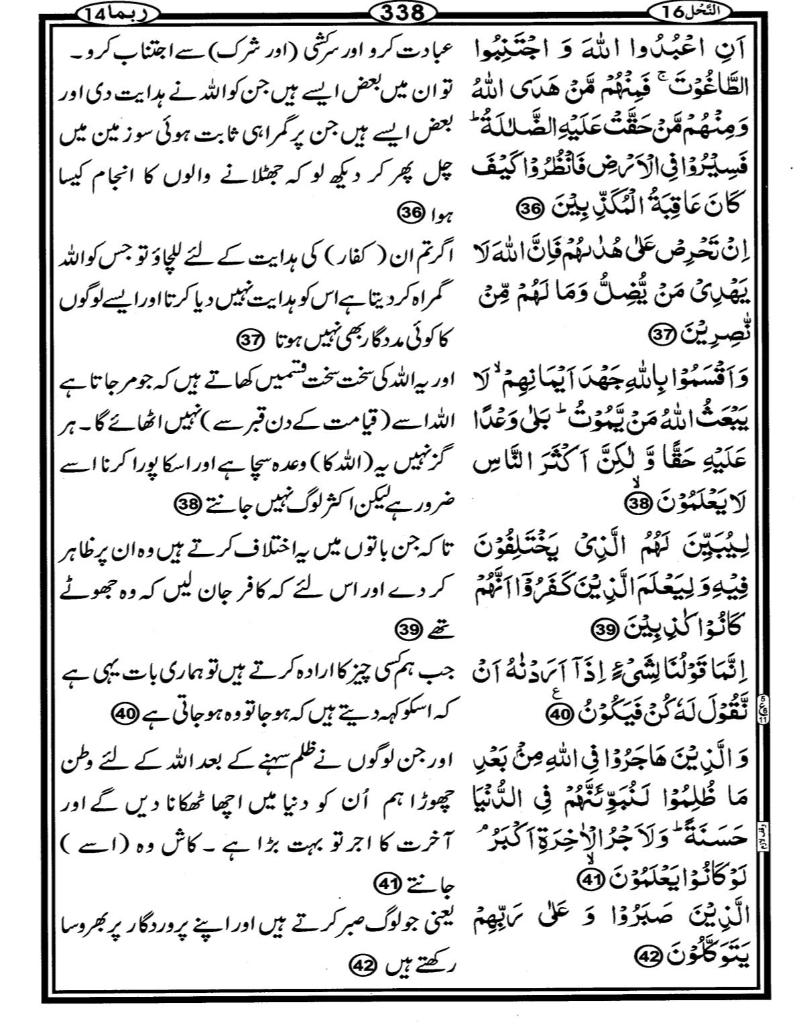 النَّحْل 16
338
ربما 14
اَنِ اعْبُدُوا اللّٰهَ وَ اجْتَنِبُوا
الطَّاغُوْتَ ۚ فَمِنْهُمْ مَّنْ هَدَى اللّٰهُ
وَمِنْهُمْ مَّنْ حَقَّتْ عَلَيْهِ الضَّلٰلَةُ ؕ
فَسِيْرُوْا فِى الْاَرْضِ فَانْظُرُوْا كَيْفَ
كَانَ عَاقِبَةُ الْمُكَذِّبِيْنَ 36
عبادت کرو اور سرکشی (اور شرک) سے اجتناب کرو۔
تو ان میں بعض ایسے ہیں جن کو اللہ نے ہدایت دی اور
بعض ایسے ہیں جن پر گمراہی ثابت ہوئی سو زمین میں
چل پھر کر دیکھ لو کہ جھٹلانے والوں کا انجام کیسا
ہوا 36
اِنْ تَحْرِصْ عَلٰى هُدٰىهُمْ فَاِنَّ اللّٰهَ لَا
يَهْدِىْ مَنْ يُّضِلُّ وَمَا لَهُمْ مِّنْ
نّٰصِرِيْنَ 37
اگر تم ان (کفار) کی ہدایت کے لئے للچاؤ تو جس کو اللہ
گمراہ کر دیتا ہے اس کو ہدایت نہیں دیا کرتا اور ایسے لوگوں
کا کوئی مددگار بھی نہیں ہوتا 37
وَاَقْسَمُوْا بِاللّٰهِ جَهْدَ اَيْمَانِهِمْ ۙ لَا
يَبْعَثُ اللّٰهُ مَنْ يَّمُوْتُ ؕ بَلٰى وَعْدًا
عَلَيْهِ حَقًّا وَّ لٰكِنَّ اَكْثَرَ النَّاسِ
لَا يَعْلَمُوْنَ ۙ 38
اور یہ اللہ کی سخت سخت قسمیں کھاتے ہیں کہ جو مر جاتا ہے
اللہ اسے (قیامت کے دن قبر سے) نہیں اٹھائے گا۔ ہر
گز نہیں یہ (اللہ کا) وعدہ سچا ہے اور اسکا پورا کرنا اسے
ضرور ہے لیکن اکثر لوگ نہیں جانتے 38
لِيُبَيِّنَ لَهُمُ الَّذِىْ يَخْتَلِفُوْنَ
فِيْهِ وَلِيَعْلَمَ الَّذِيْنَ كَفَرُوْۤا اَنَّهُمْ
كَانُوْا كٰذِبِيْنَ 39
تا کہ جن باتوں میں یہ اختلاف کرتے ہیں وہ ان پر ظاہر
کر دے اور اس لئے کہ کافر جان لیں کہ وہ جھوٹے
تھے 39
اِنَّمَا قَوْلُنَا لِشَىْءٍ اِذَاۤ اَرَدْنٰهُ اَنْ
نَّقُوْلَ لَهٗ كُنْ فَيَكُوْنُ ع 40
جب ہم کسی چیز کا ارادہ کرتے ہیں تو ہماری بات یہی ہے
کہ اسکو کہہ دیتے ہیں کہ ہو جا تو وہ ہو جاتی ہے 40
وَالَّذِيْنَ هَاجَرُوْا فِى اللّٰهِ مِنْۢ بَعْدِ
مَا ظُلِمُوْا لَنُبَوِّئَنَّهُمْ فِى الدُّنْيَا
حَسَنَةً ؕ وَلَاَجْرُ الْاٰخِرَةِ اَكْبَرُ ۘ
لَوْ كَانُوْا يَعْلَمُوْنَ ۙ 41
وقف لازم
اور جن لوگوں نے ظلم سہنے کے بعد اللہ کے لئے وطن
چھوڑا ہم اُن کو دنیا میں اچھا ٹھکانا دیں گے اور
آخرت کا اجر تو بہت بڑا ہے۔ کاش وہ (اسے)
جانتے 41
الَّذِيْنَ صَبَرُوْا وَ عَلٰى رَبِّهِمْ
يَتَوَكَّلُوْنَ 42
یعنی جو لوگ صبر کرتے ہیں اور اپنے پروردگار پر بھروسا
رکھتے ہیں 42